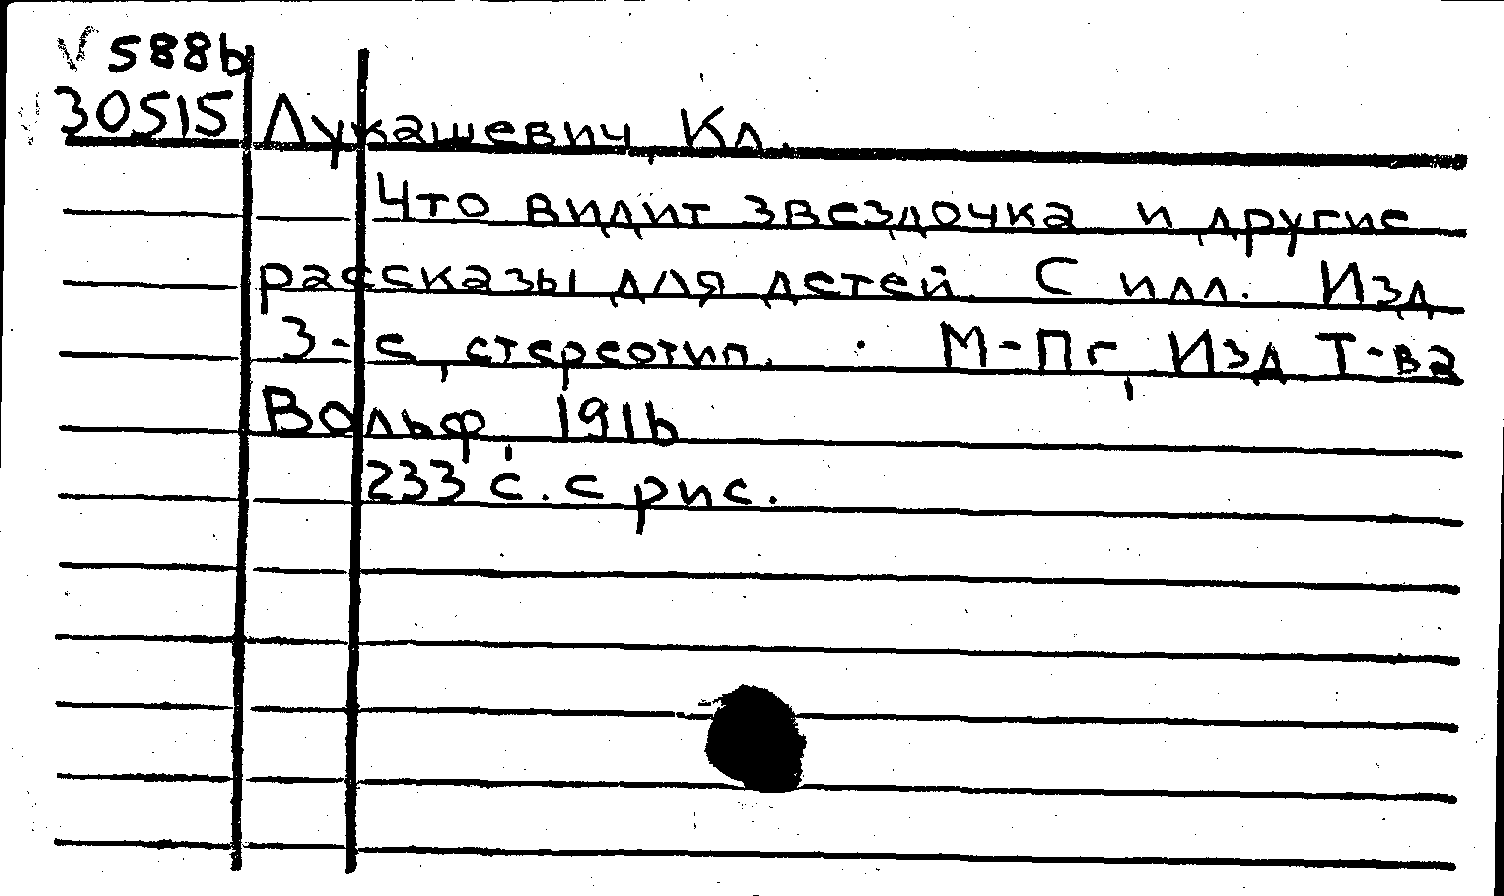 V 5886
30515 Лукашевич, Кл.
Что видит звездочка и другие
рассказы для детей. С илл. Изд
3-е, стереотип. М-Пг, Изд Т-ва
Вольф, 1916
233 с. с рис.